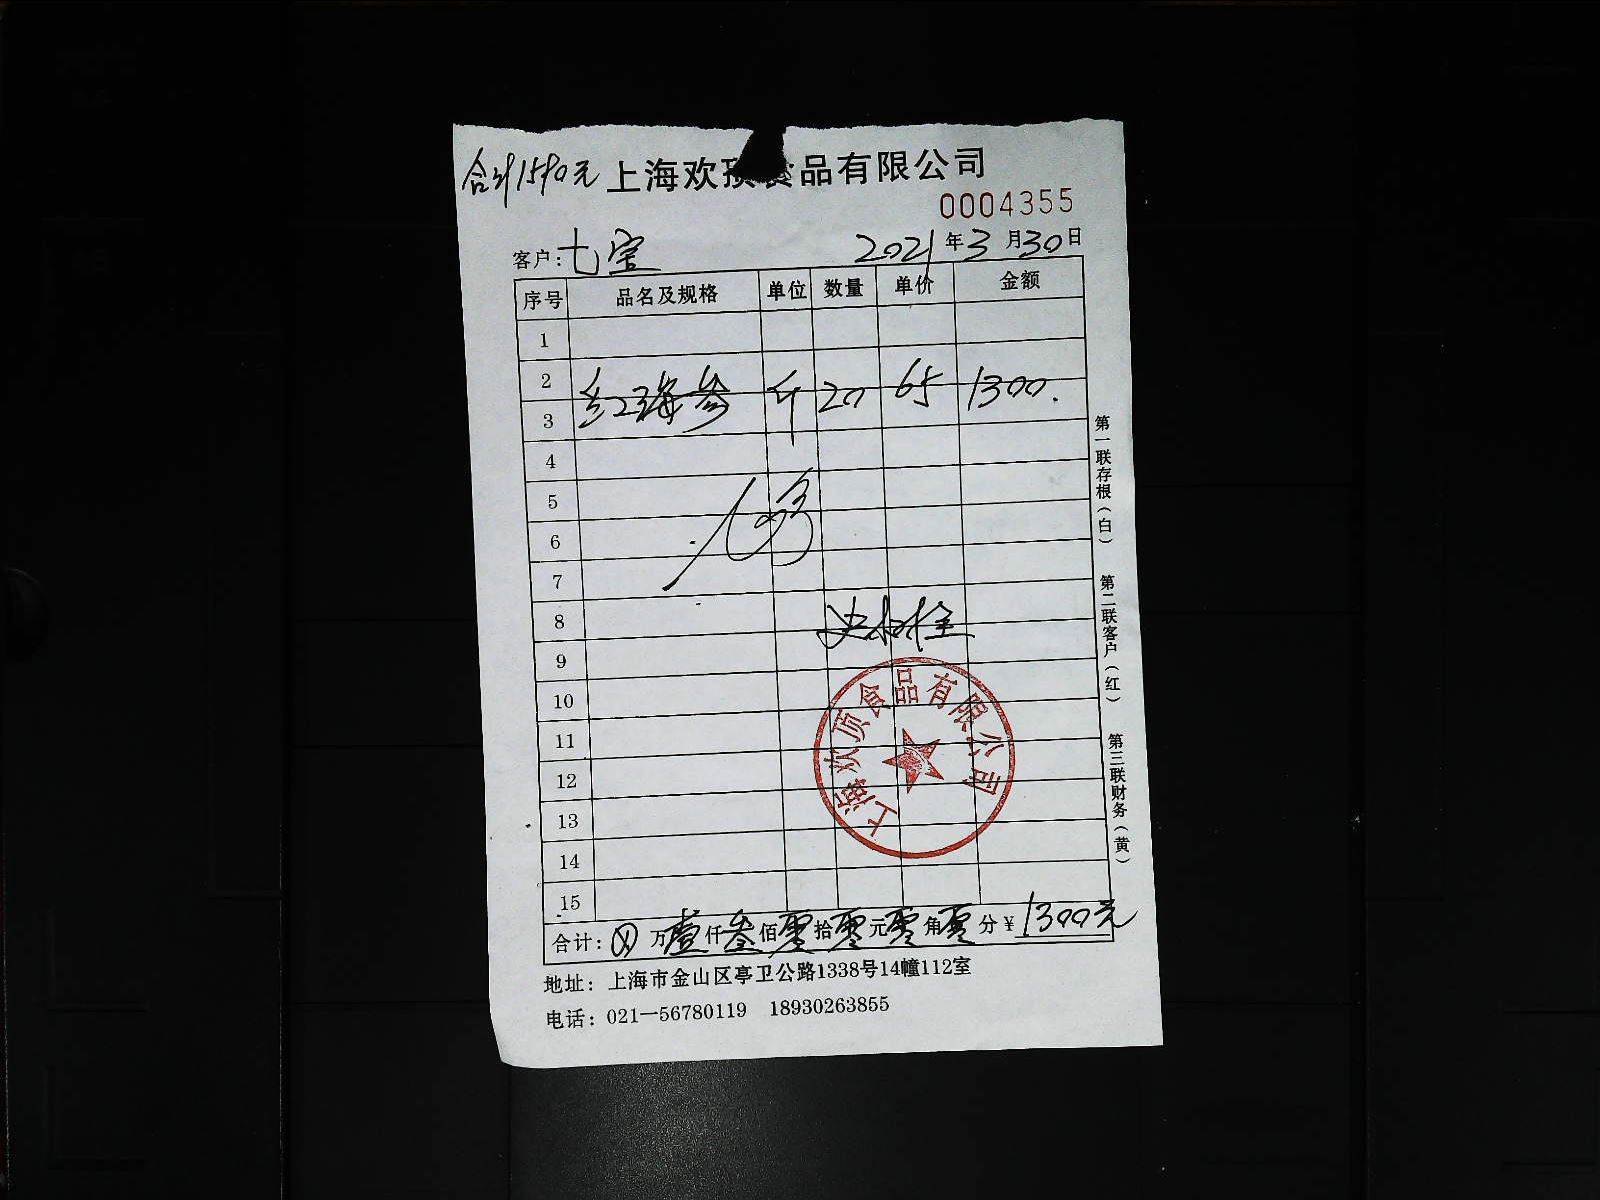 合计1590元 上海欢顶食品有限公司
0004355
客户：七宝 2021年3月30日
序号 品名及规格 单位 数量 单价 金额
1
2
红海参 斤 20 65 1300.
3
4
5
6
7
8
9
10
11
12
13
14
15
合计：⊗万壹仟叁佰零拾零元零角零分￥1300元
地址：上海市金山区亭卫公路1338号14幢112室
电话：021—56780119 18930263855
第一联存根（白） 第二联客户（红） 第三联财务（黄）
上海欢顶食品有限公司